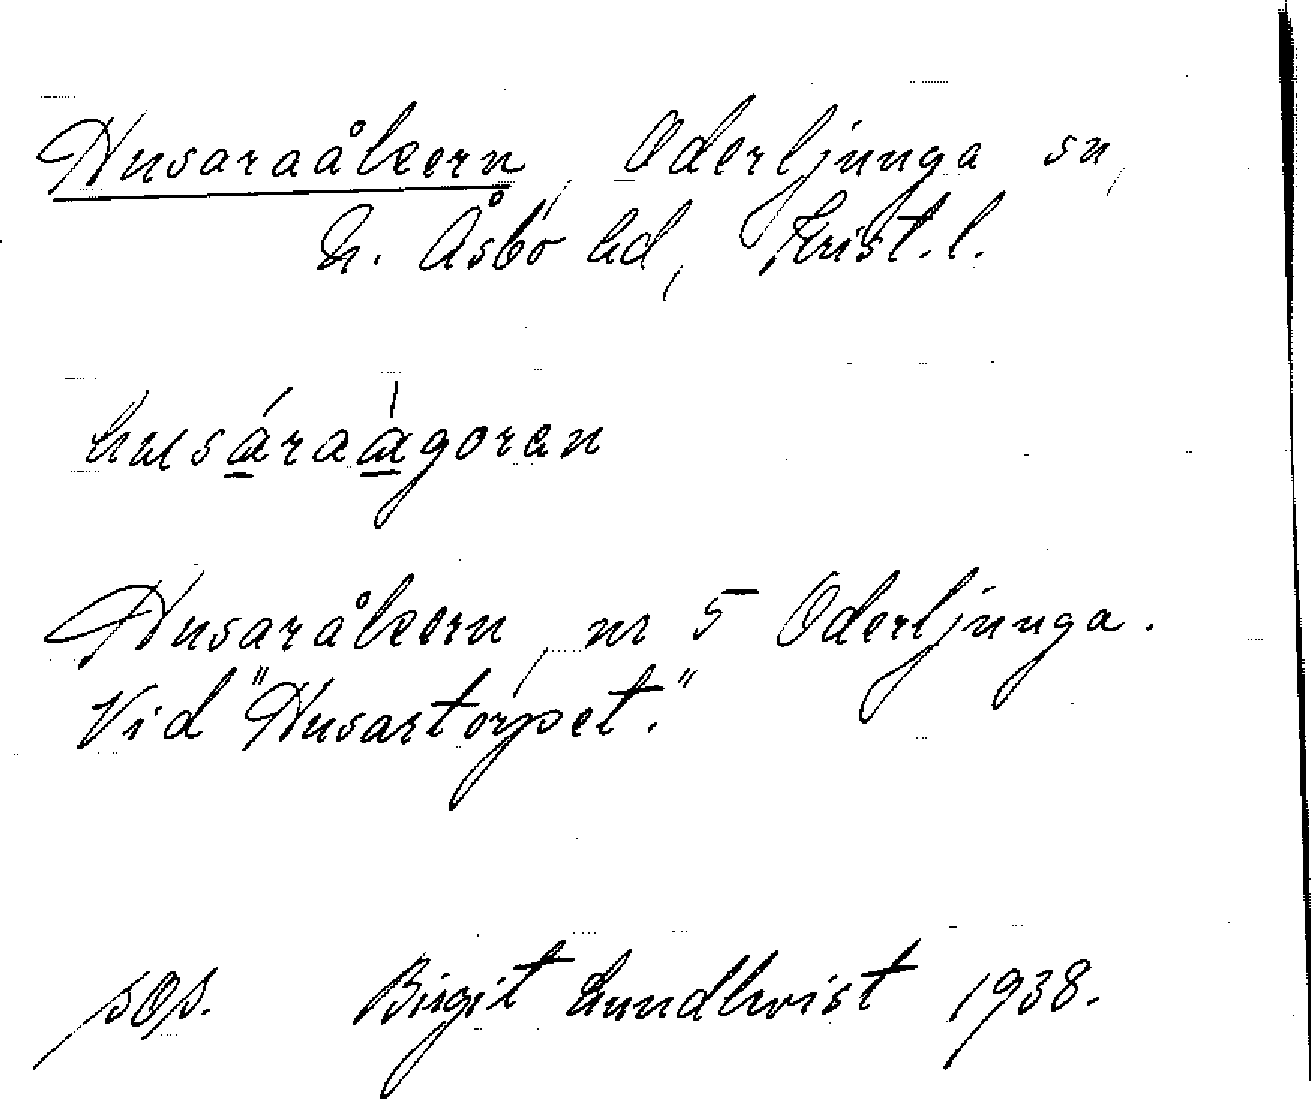 Husaraåkern, Oderljunga sn,
N. Åsbo hd, Krist. l.
husáraágoran
Husaråkern, nr 5 Oderljunga.
Vid "Husartorpet."
Birgit Lundkvist 1938.